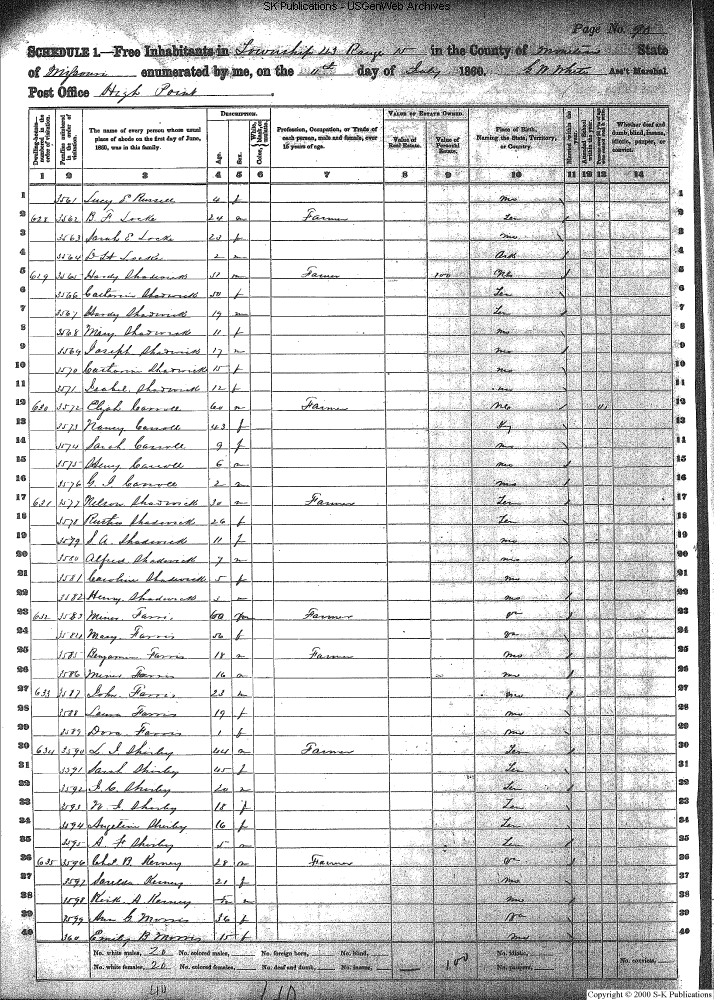 SK Publications - USGenWeb Archives
Page No. 90
SCHEDULE 1.—Free Inhabitants in Township 43 Range 15 in the County of Moniteau State
of Missouri enumerated by me, on the 11th day of July 1860. Ass't Marshal.
Post Office High Point
DESCRIPTION. VALUE OF ESTATE OWNED.
The name of every person whose usual place of abode on the first day of June, 1860, was in this family.
Age. Sex.
Profession, Occupation, or Trade of each person, male and female, over 15 years of age.
Value of Real Estate. Value of Personal Estate.
Place of Birth, Naming the State, Territory, or Country.
Whether deaf and dumb, blind, insane, idiotic, pauper, or convict.
1 2 3 4 5 6 7 8 9 10 11 12 13 14
1 3561 Lucy E Russell 4 f Mo 1
2 628 3562 B F Locke 24 m Farmer Ten 2
3 3563 Sarah E Locke 23 f Mo 3
4 3564 Locke 2 m Ark 4
5 629 3565 Hardy Shadwick 51 m Farmer 100 5
6 3566 Shadwick 50 f Ten 6
7 3567 Hardy Shadwick 19 m Ten 7
8 3568 Mary Shadwick 11 f Mo 8
9 3569 Joseph Shadwick 17 m Mo 9
10 3570 Shadwick 15 f Mo 10
11 3571 Isabel Shadwick 12 f Mo 11
12 630 3572 Elijah Carroll 60 m Farmer 12
13 3573 Nancy Carroll 43 f Ky 13
14 3574 Sarah Carroll 9 f Mo 14
15 3575 Henry Carroll 6 m Mo 15
16 3576 G. I Carroll 2 m Mo 16
17 631 3577 Nelson Shadwick 30 m Farmer Ten 17
18 3578 Shadwick 26 f Ten 18
19 3579 S A. Shadwick 11 f Mo 19
20 3580 Alfred Shadwick 7 m Mo 20
21 3581 Caroline Shadwick 5 f Mo 21
22 3582 Henry Shadwick 3 m Mo 22
23 632 3583 Farris 60 m Farmer Va 23
24 3584 Mary Farris 56 f Va 24
25 3585 Benjamin Farris 18 m Farmer Mo 25
26 3586 Farris 16 m Mo 26
27 633 3587 John Farris 23 m Mo 27
28 3588 Laura Farris 19 f Mo 28
29 3589 Dora Farris 1 f Mo 29
30 634 3590 L. J Shirley 44 m Farmer Ten 30
31 3591 Sarah Shirley 45 f Ten 31
32 3592 J. C Shirley 20 m Ten
33 3593 N J. Shirley 18 f Ten
34 3594 Angeline Shirley 16 f Ten
35 3595 A. F Shirley 5 m Ten
36 635 3596 Chas. B. Kerney 28 m Farmer Va
37 3597 Serelda Kerney 21 f Mo
38 3598 Kirk A Kerney m Mo
39 3599 Ann G Morris 36 f Va
40 360 Emily B Morris 15 f Mo
No. white males, 20 No. colored males, No. foreign born, No. blind, No. idiotic, No. convicts,
No. white females, 20 No. colored females, No. deaf and dumb, No. insane, 100 No. paupers,
40
Copyright © 2000 S-K Publications